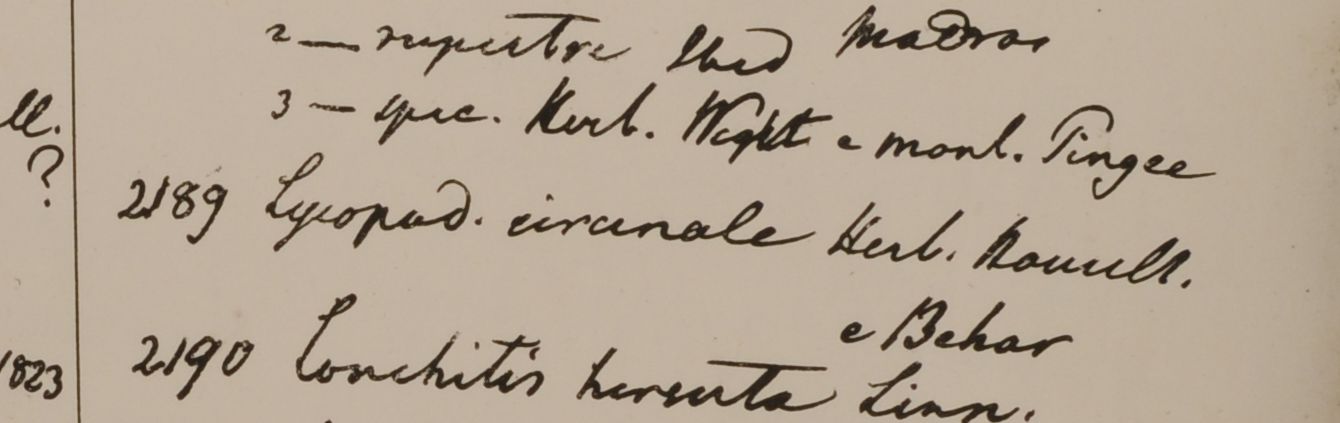 2 — rupestre Herb Madras
3 — spec. Herb. Wight e mont. Pingee
ll.
?
2189 Lycopod. circinale Herb. Rouell.
e Behar
1823
2190 Lonchitis hirsuta Linn.